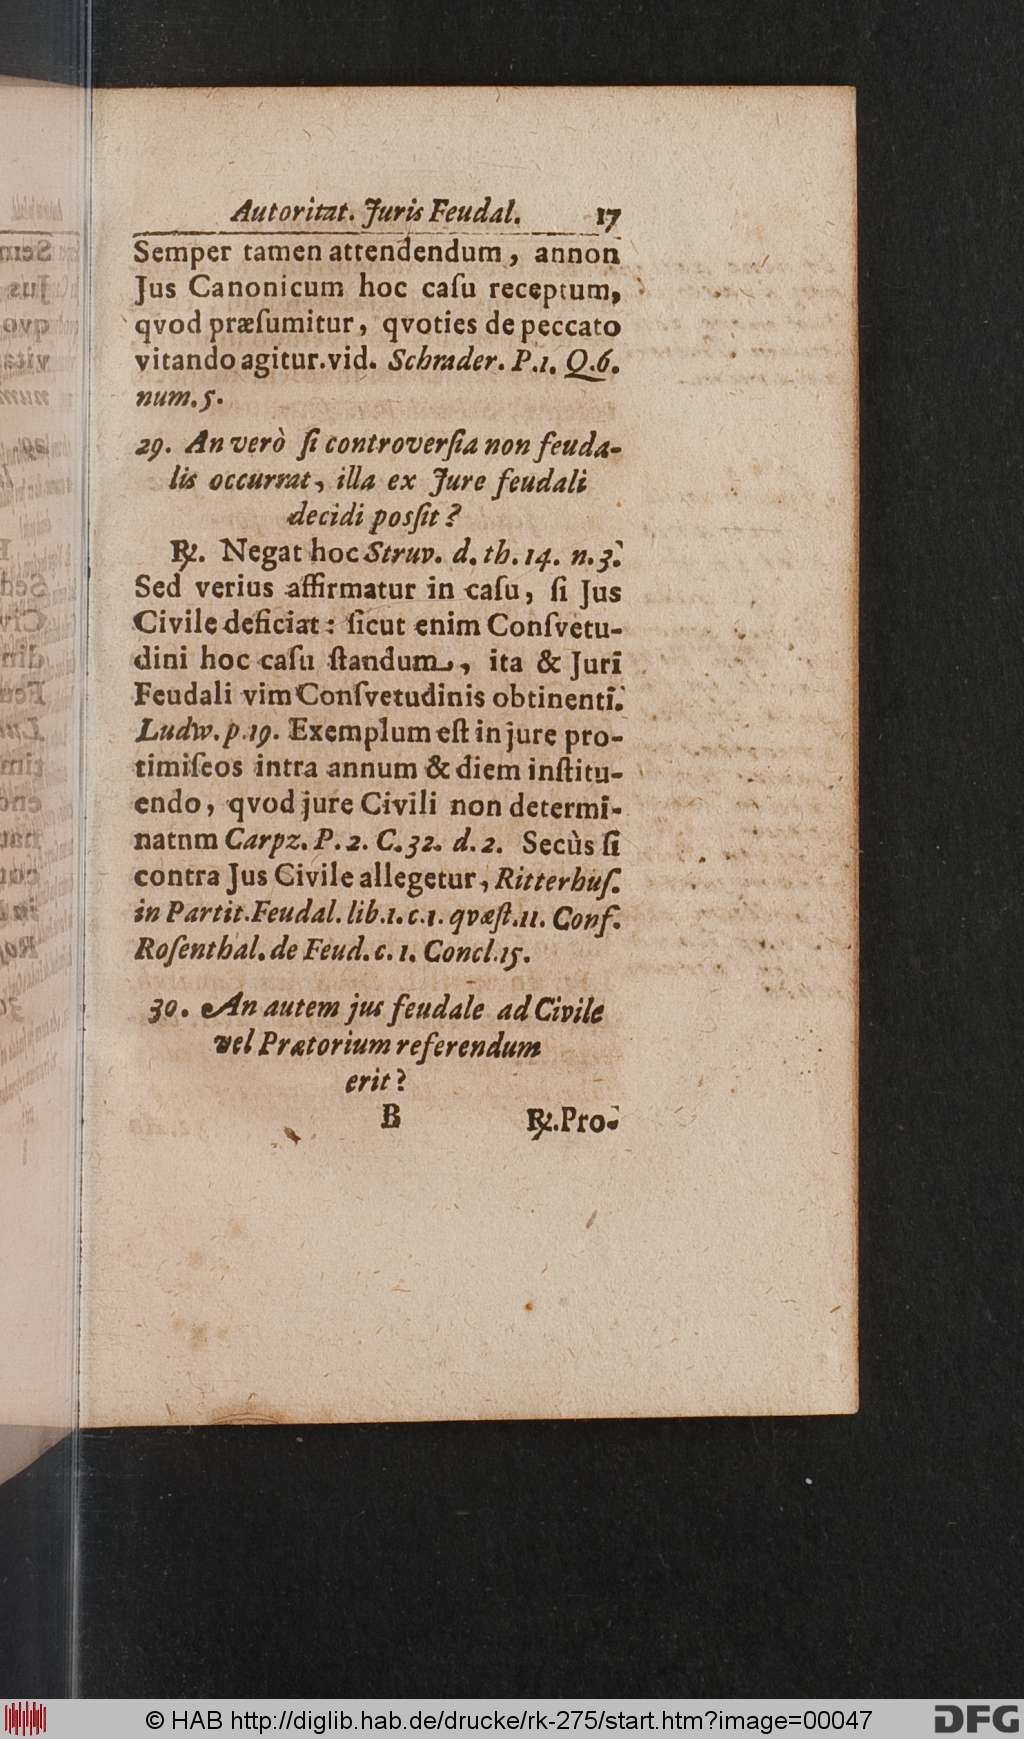 Autoritat. Juris Feudal. 17
Semper tamen attendendum, annon
Jus Canonicum hoc caſu receptum,
qvod præſumitur, qvoties de peccato
vitando agitur. vid. Schrader. P.1. Q.6.
num.5.
29. An verò ſi controverſia non feuda-
lis occurrat, illa ex Jure feudali
decidi posſit?
℞. Negat hoc Struv. d. th. 14. n. 3.
Sed verius affirmatur in caſu, ſi Jus
Civile deficiat: ſicut enim Conſvetu-
dini hoc caſu ſtandum, ita & Juri
Feudali vim Conſvetudinis obtinenti.
Ludw. p.19. Exemplum eſt in jure pro-
timiſeos intra annum & diem inſtitu-
endo, qvod jure Civili non determi-
natnm Carpz. P. 2. C. 32. d. 2. Secùs ſi
contra Jus Civile allegetur, Ritterhuſ.
in Partit. Feudal. lib.1. c.1. qvæſt.11. Conf.
Roſenthal. de Feud. c. 1. Concl.15.
30. An autem jus feudale ad Civile
vel Prætorium referendum
erit?
B ℞. Pro-
© HAB http://diglib.hab.de/drucke/rk-275/start.htm?image=00047
DFG